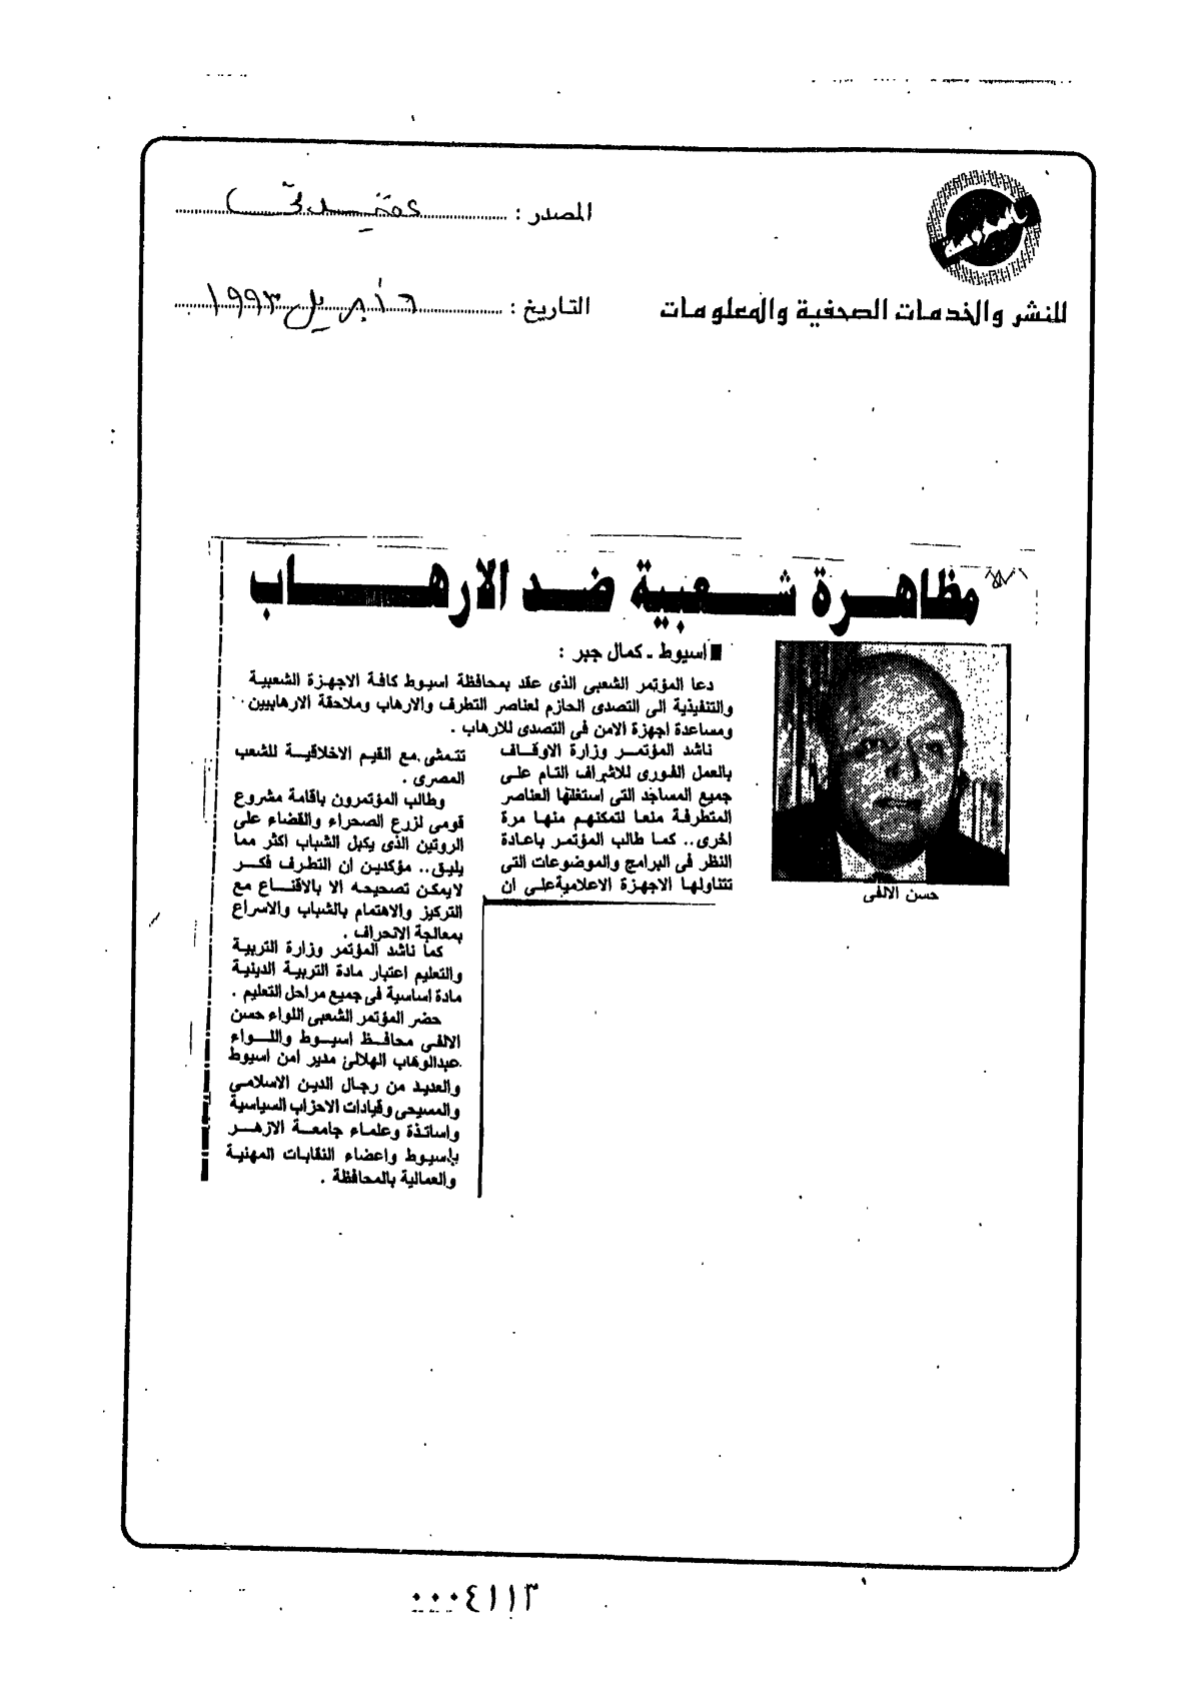 المصدر : عقيدتى
للنشر والخدمات الصحفية والمعلومات
التاريخ : ٦ أبريل ١٩٩٣
مظاهرة شعبية ضد الارهاب
■ اسيوط ـ كمال جبر :
دعا المؤتمر الشعبى الذى عقد بمحافظة اسيوط كافة الاجهزة الشعبية
والتنفيذية الى التصدى الحازم لعناصر التطرف والارهاب وملاحقة الارهابيين
ومساعدة اجهزة الامن فى التصدى للارهاب .
ناشد المؤتمر وزارة الاوقاف
بالعمل الفورى للاشراف التام على
جميع المساجد التى استغلتها العناصر
المتطرفة منعا لتمكنهم منها مرة
اخرى.. كما طالب المؤتمر باعادة
النظر فى البرامج والموضوعات التى
تتناولها الاجهزة الاعلامية على ان
تتمشى مع القيم الاخلاقية للشعب
المصرى .
وطالب المؤتمرون باقامة مشروع
قومى لزرع الصحراء والقضاء على
الروتين الذى يكبل الشباب اكثر مما
يليق.. مؤكدين ان التطرف فكر
لايمكن تصحيحه الا بالاقناع مع
التركيز والاهتمام بالشباب والاسراع
بمعالجة الانحراف .
كما ناشد المؤتمر وزارة التربية
والتعليم اعتبار مادة التربية الدينية
مادة اساسية فى جميع مراحل التعليم .
حضر المؤتمر الشعبى اللواء حسن
الالفى محافظ اسيوط واللواء
عبدالوهاب الهلالى مدير امن اسيوط
والعديد من رجال الدين الاسلامى
والمسيحى وقيادات الاحزاب السياسية
واساتذة وعلماء جامعة الازهر
باسيوط واعضاء النقابات المهنية
والعمالية بالمحافظة .
حسن الالفى
٠٠٠٤١١٣